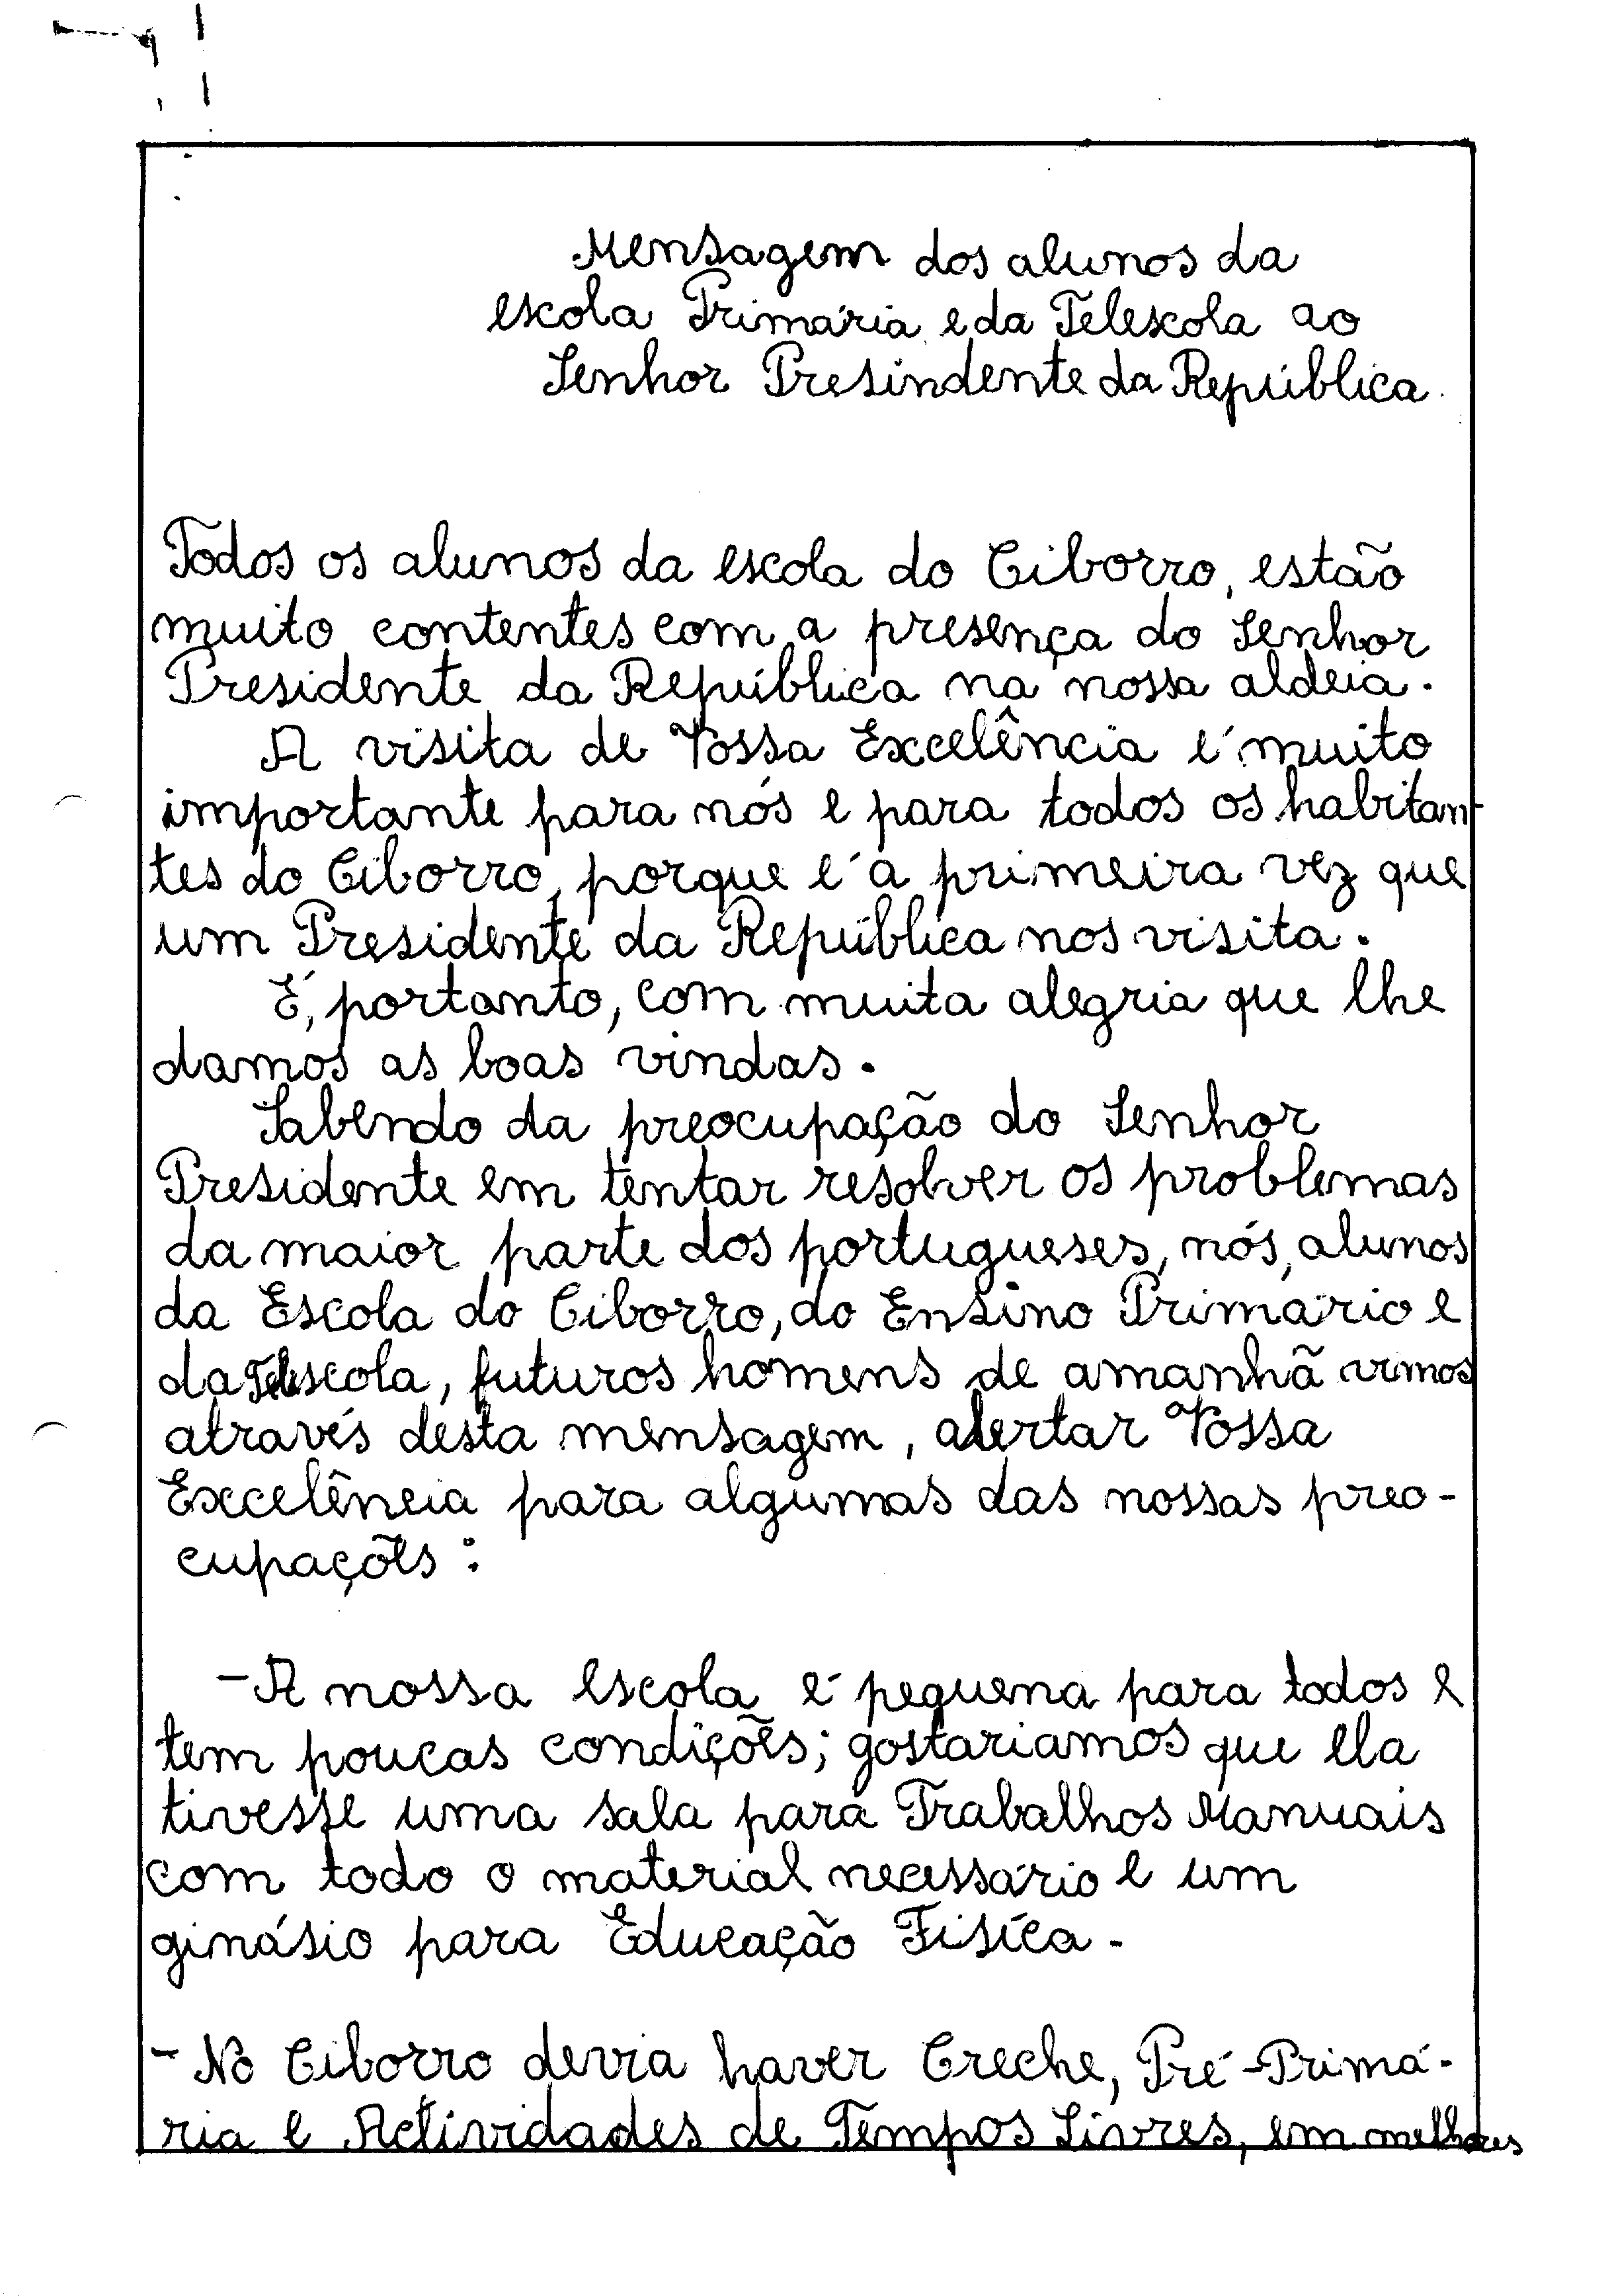 Mensagem dos alunos da
escola Primária e da Telescola ao
Senhor Presindente da República.
Todos os alunos da escola do Ciborro, estão
muito contentes com a presença do Senhor
Presidente da República na nossa aldeia.
A visita de Vossa Excelência é muito
importante para nós e para todos os habitan-
tes do Ciborro, porque é a primeira vez que
um Presidente da República nos visita.
É, portanto, com muita alegria que lhe
damos as boas vindas.
Sabendo da preocupação do Senhor
Presidente em tentar resolver os problemas
da maior parte dos portugueses, nós, alunos
da Escola do Ciborro, do Ensino Primário e
da Telescola, futuros homens de amanhã vimos
através desta mensagem, alertar Vossa
Excelência para algumas das nossas preo-
cupações:
- A nossa escola é pequena para todos e
tem poucas condições; gostariamos que ela
tivesse uma sala para Trabalhos Manuais
com todo o material necessário e um
ginásio para Educação Fisíca.
- No Ciborro devia haver Creche, Pré-Primá-
ria e Actividades de Tempos Livres, em melhores